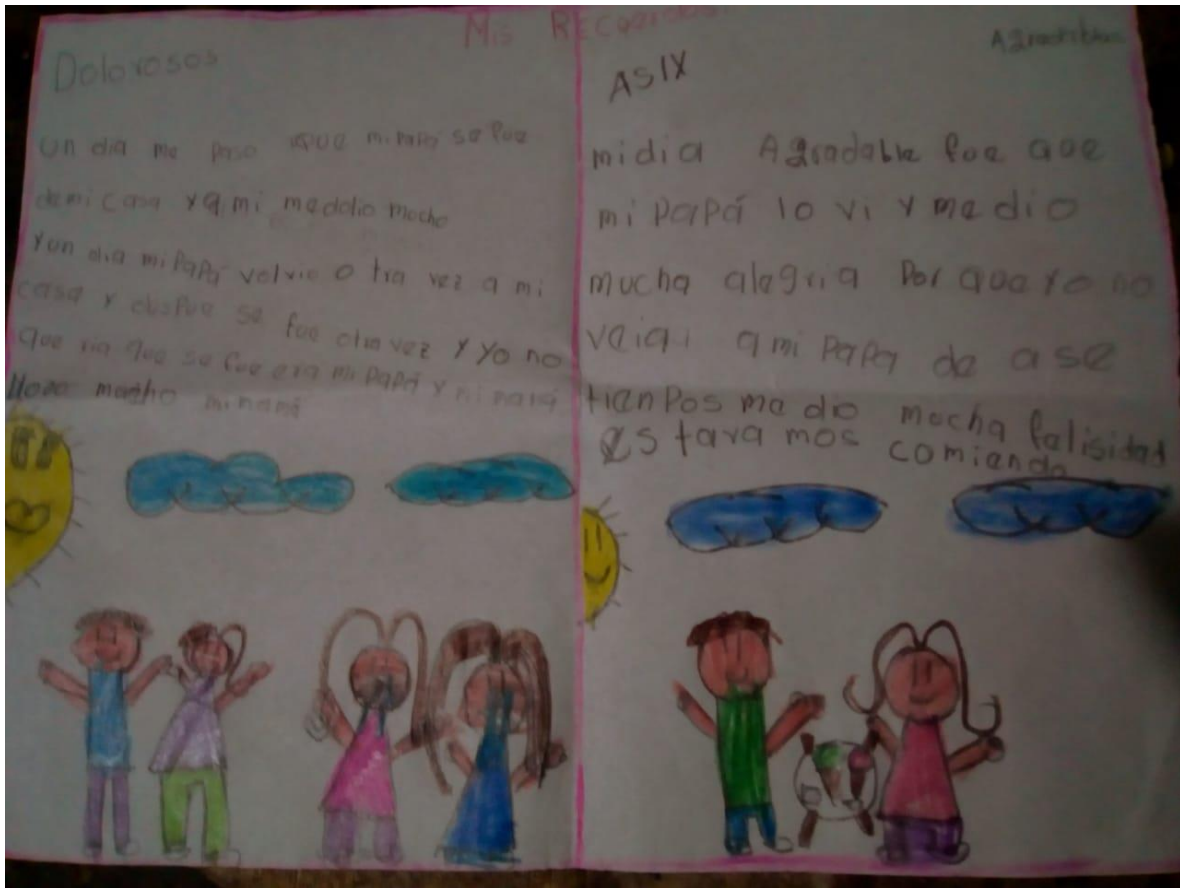 Mis RECOR
Dolorosos
un dia me paso que mi papá se fue
de mi casa y a mi me dolio mocho
Y un dia mi Papá volvio o tra vez a mi
casa y dispue se fue otra vez y yo no
que ria que se fue era mi papá y mi mamá
lloro mocho mi mamá
Agradables
ASIX
mi dia Agradable foe qoe
mi PaPá lo vi y me dio
mucha alegria Por qoe yo no
veia a mi PaPa de a se
tienPos me dio mocha felisidad
es tava mos comiendo